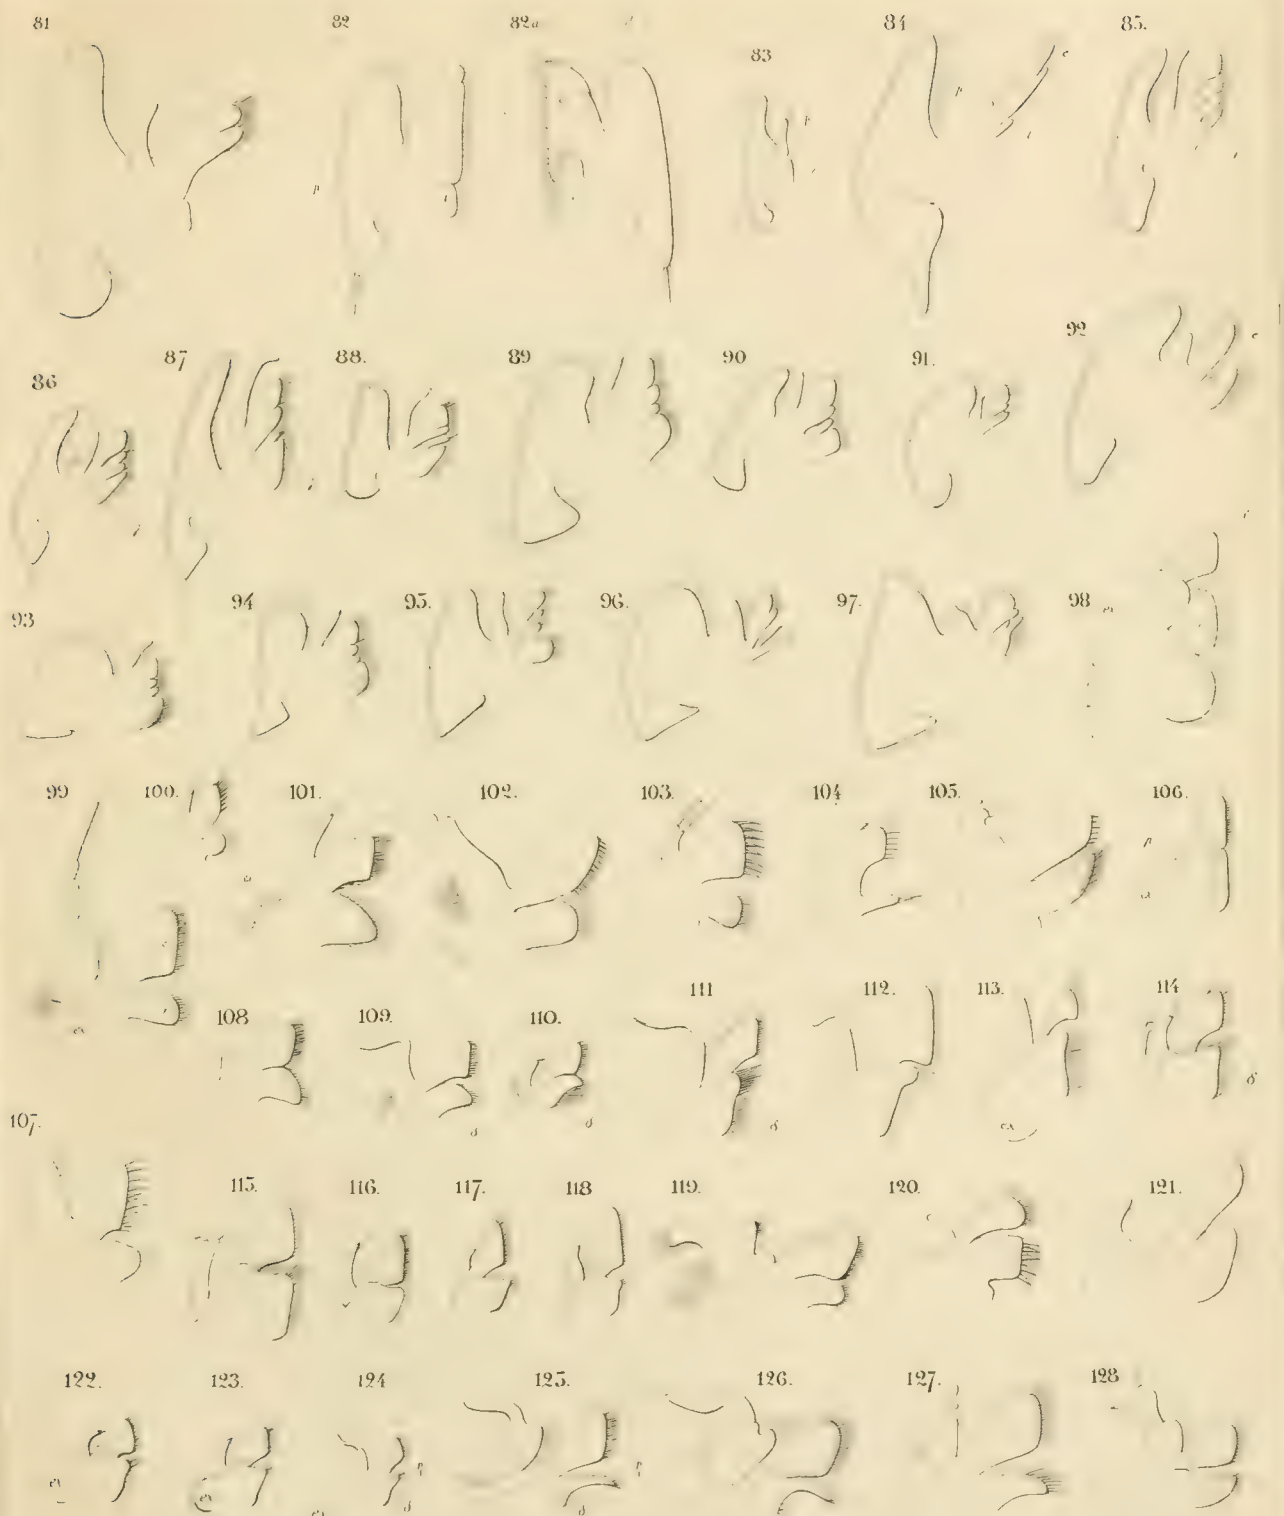 81 82 82a 83 84 85.
86 87 88. 89 90 91. 92
93 94 95. 96. 97. 98
99 100. 101. 102. 103. 104 105. 106.
107. 108 109. 110. 111 112. 113. 114
115. 116. 117. 118 119. 120. 121.
122. 123. 124 125. 126. 127. 128